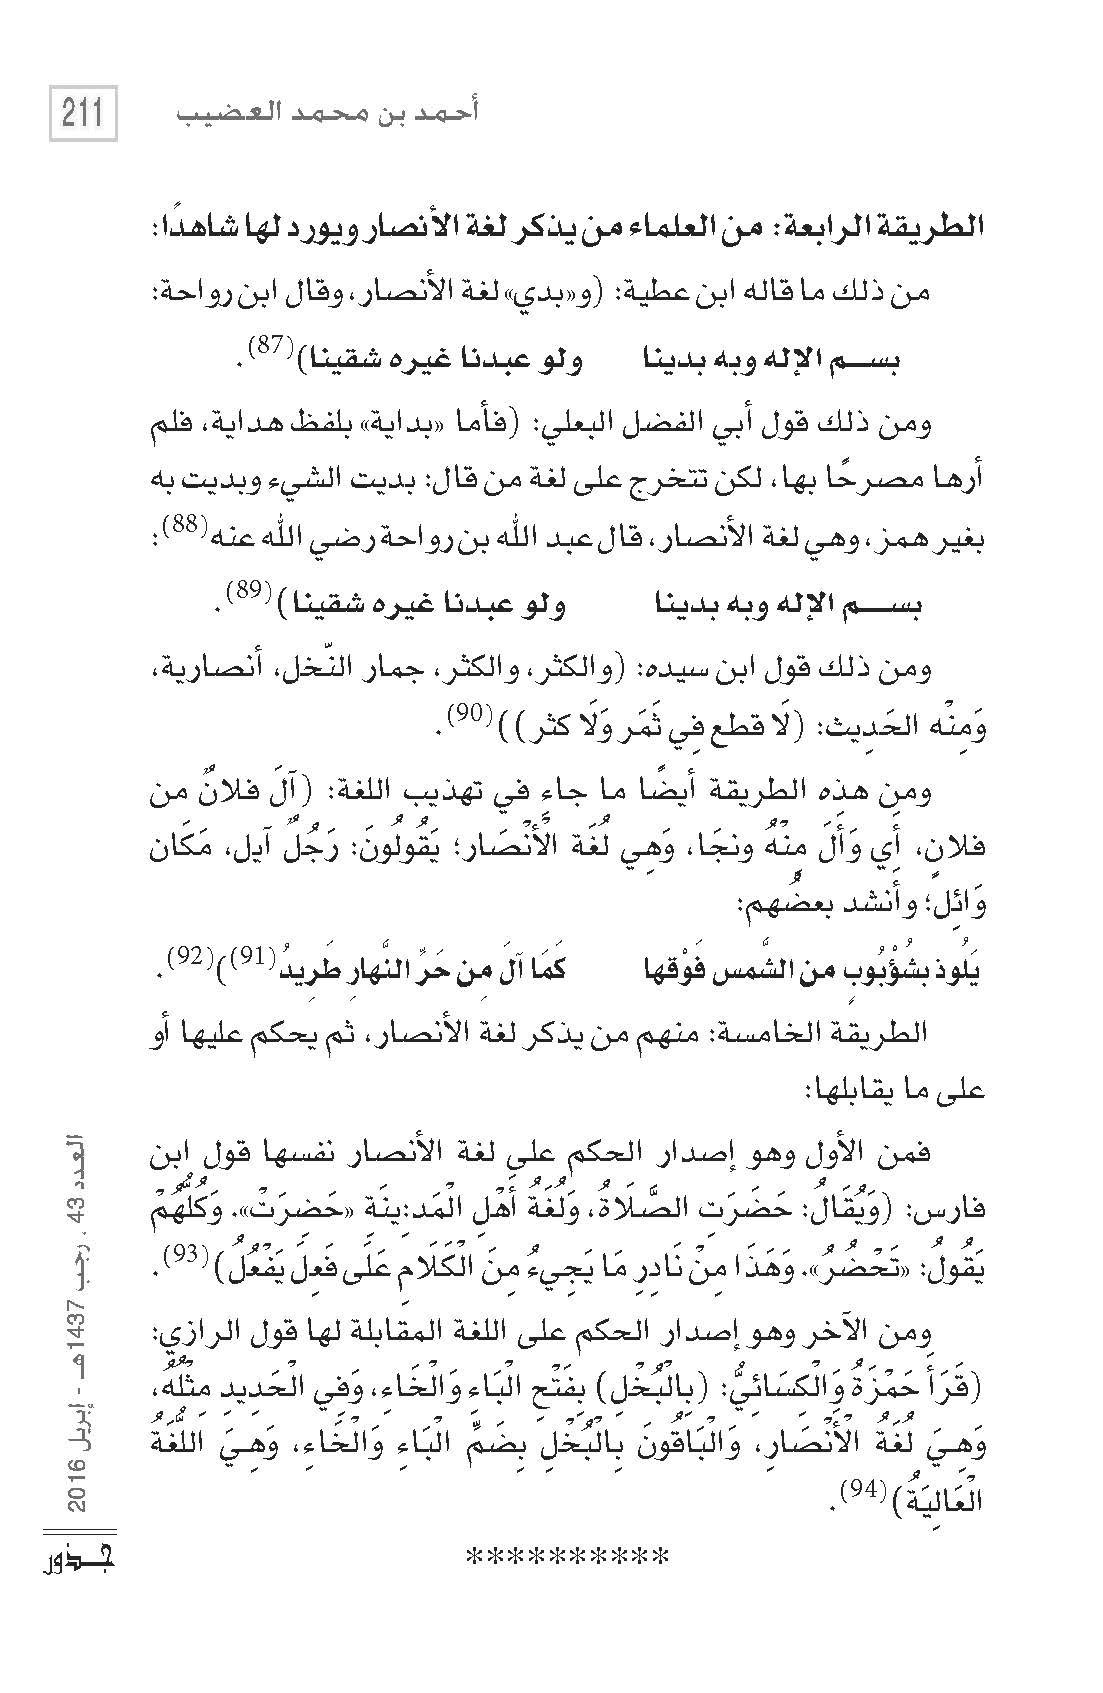 أحمد بن محمد العضيب
211
الطريقة الرابعة: من العلماء من يذكر لغة الأنصار ويورد لها شاهدًا:
من ذلك ما قاله ابن عطية: (و«بدي» لغة الأنصار، وقال ابن رواحة:
بســم الإله وبه بدينا ولو عبدنا غيره شقينا)(87).
ومن ذلك قول أبي الفضل البعلي: (فأما «بداية» بلفظ هداية، فلم
أرها مصرحًا بها، لكن تتخرج على لغة من قال: بديت الشيء وبديت به
بغير همز، وهي لغة الأنصار، قال عبد الله بن رواحة رضي الله عنه(88):
بســم الإله وبه بدينا ولو عبدنا غيره شقينا)(89).
ومن ذلك قول ابن سيده: (والكثر، والكثر، جمار النّخل، أنصارية،
وَمِنْه الحَدِيث: (لَا قطع فِي ثَمَر وَلَا كثر))(90).
ومِن هذه الطريقة أيضًا ما جاء في تهذيب اللغة: (آلَ فلانٌ من
فلانٍ، أَي وَأَلَ مِنْهُ ونجَا، وَهِي لُغَة الْأَنْصَار؛ يَقُولُونَ: رَجُلٌ آيل، مَكَان
وَائِل؛ وأنشد بعضُهم:
يَلُوذ بشُؤْبُوبٍ من الشَّمس فَوْقها كَمَا آلَ مِن حَرِّ النَّهار طَرِيدُ(91))(92).
الطريقة الخامسة: منهم من يذكر لغة الأنصار، ثم يحكم عليها أو
على ما يقابلها:
فمن الأول وهو إصدار الحكم على لغة الأنصار نفسها قول ابن
فارس: (وَيُقَالُ: حَضَرَتِ الصَّلَاةُ، وَلُغَةُ أَهْلِ الْمَدِينَةِ «حَضِرَتْ». وَكُلُّهُمْ
يَقُولُ: «تَحْضُرُ». وَهَذَا مِنْ نَادِرِ مَا يَجِيءُ مِنَ الْكَلَامِ عَلَى فَعِلَ يَفْعُلُ)(93).
ومِن الآخر وهو إصدار الحكم على اللغة المقابلة لها قول الرازي:
(قَرَأَ حَمْزَةُ وَالْكِسَائِيُّ: (بِالْبُخْلِ) بِفَتْحِ الْبَاءِ وَالْخَاءِ، وَفِي الْحَدِيدِ مِثْلُهُ،
وَهِيَ لُغَةُ الْأَنْصَارِ، وَالْبَاقُونَ بِالْبُخْلِ بِضَمِّ الْبَاءِ وَالْخَاءِ، وَهِيَ اللُّغَةُ
الْعَالِيَةُ)(94).
**********
العدد 43 ، رجب 1437هـ - إبريل 2016
جــذور